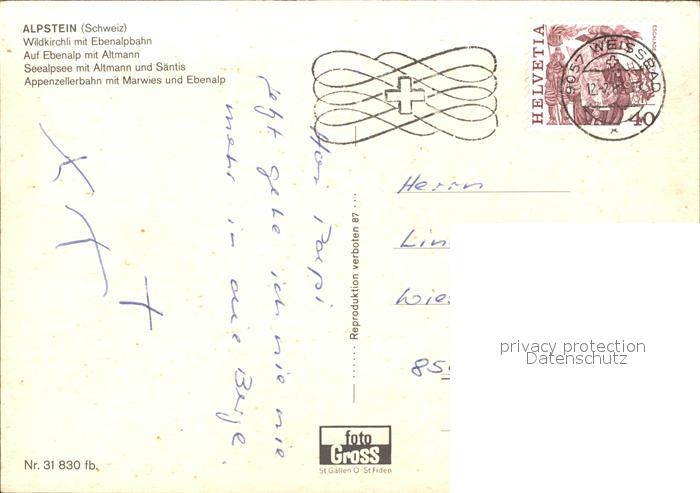 ALPSTEIN (Schweiz)
Wildkirchli mit Ebenalpbahn
Auf Ebenalp mit Altmann
Seealpsee mit Altmann und Säntis
Appenzellerbahn mit Marwies und Ebenalp
HELVETIA
ESCALADE
40
9057 WEISSBAD
Hoi Papi
jetzt gehe ich nie nie
mehr in die Berge.
Reproduktion verboten 87
Herrn
Lin
Wie
85
privacy protection
Datenschutz
foto
Gross
St.Gallen O St.Fiden
Nr. 31 830 fb.